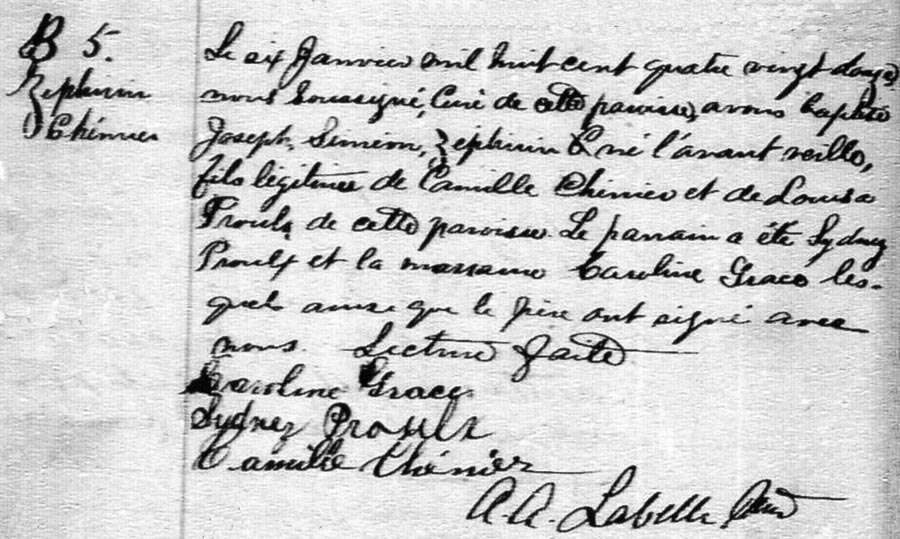 B 5.
Zephirin
Chénier
Le six Janvier mil huit cent quatre vingt douze
nous soussigné, Curé de cette paroisse, avons baptisé
Joseph, Siméon, Zephirin né l'avant veille,
fils légitime de Camille Chénier et de Louisa
Proulx de cette paroisse. Le parrain a été Sydney
Proulx et la marraine Caroline Grace les-
quels ainsi que le père ont signé avec
nous. Lecture faite
Caroline Grace
Sydney Proulx
Camille Chénier
A. A. Labelle Ptre